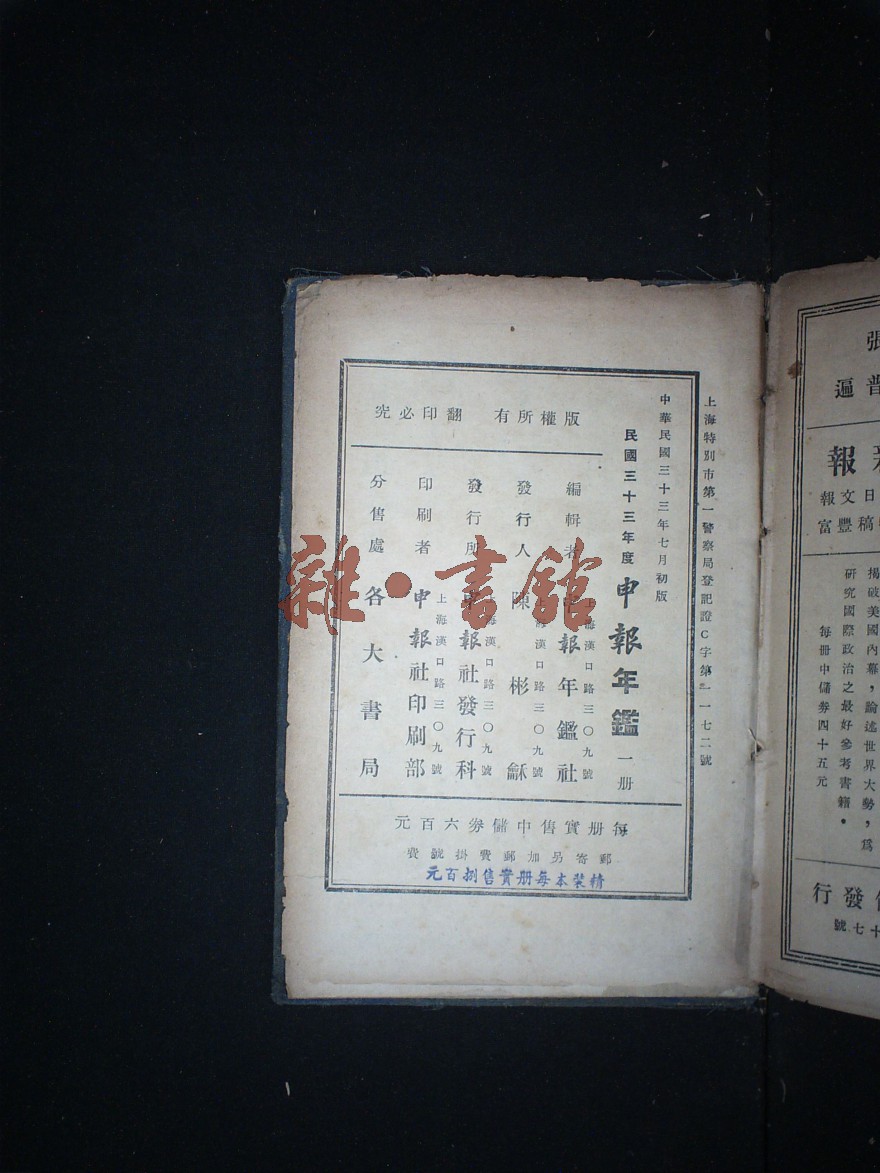 上海特別市第一警察局登記證C字第一一七二號
中華民國三十三年七月初版
民國三十三年度 申報年鑑 一册
版權所有 翻印必究
編輯者 申報年鑑社
上海漢口路三〇九號
發行人 陳彬龢
上海漢口路三〇九號
發行所 申報社發行科
上海漢口路三〇九號
印刷者 申報社印刷部
上海漢口路三〇九號
分售處 各大書局
每册實售中儲券六百元
郵寄另加郵費掛號費
精裝本每册實售捌百元
雜·書館
張
普遍
報
日文報
稿豐富
揭破美國內幕，論述世界大勢，爲
研究國際政治之最好參考書籍。
每冊中儲券四十五元
發行
十七號